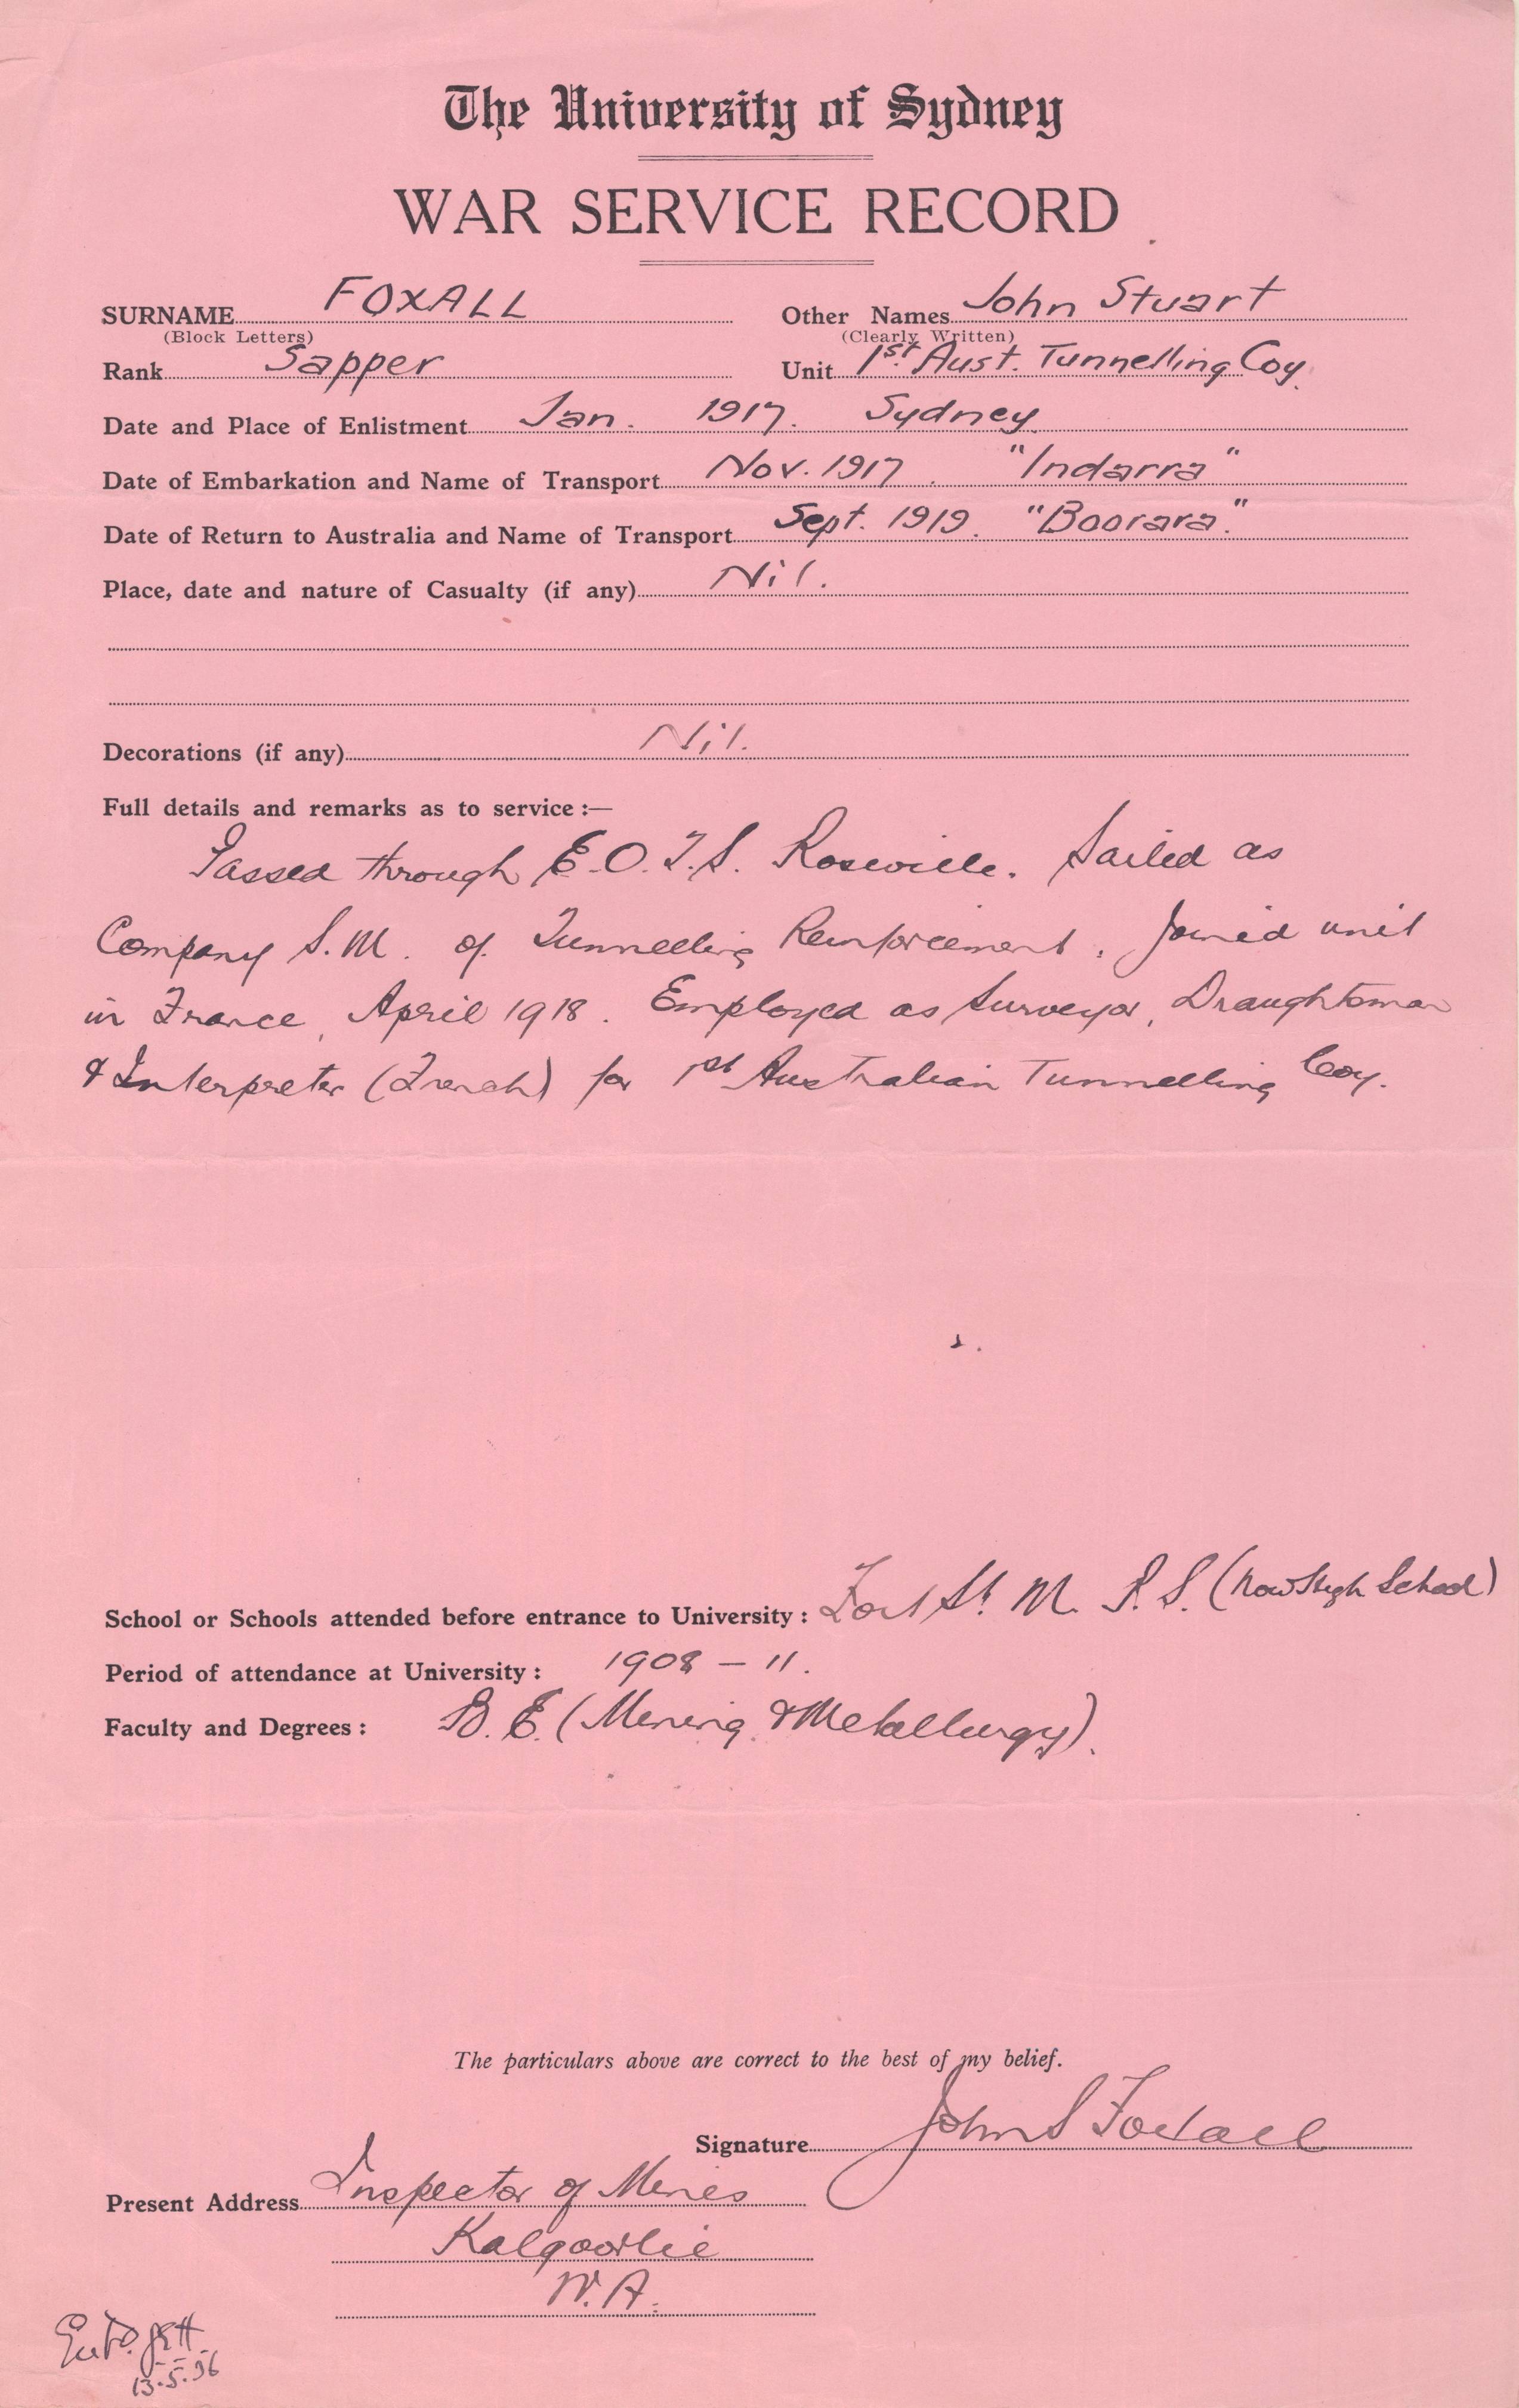 The University of Sydney
WAR SERVICE RECORD
SURNAME FOXALL Other Names John Stuart
(Block Letters) (Clearly Written)
Rank Sapper Unit 1st Aust. Tunnelling Coy.
Date and Place of Enlistment Jan. 1917. Sydney
Date of Embarkation and Name of Transport Nov. 1917. "Indarra"
Date of Return to Australia and Name of Transport Sept. 1919. "Boorara."
Place, date and nature of Casualty (if any) Nil.
Decorations (if any) Nil.
Full details and remarks as to service :—
Passed through E.O.T.S. Roseville. Sailed as
Company S.M. of Tunnelling Reinforcement. Joined unit
in France, April 1918. Employed as Surveyor, Draughtsman
& Interpreter (French) for 1st Australian Tunnelling Coy.
School or Schools attended before entrance to University : Fort St. M. P. S. (now High School)
Period of attendance at University : 1908 - 11.
Faculty and Degrees : B. E. (Mining & Metallurgy).
The particulars above are correct to the best of my belief.
Signature John S Foxall
Present Address Inspector of Mines
Kalgoorlie
W. A.
13.5.36